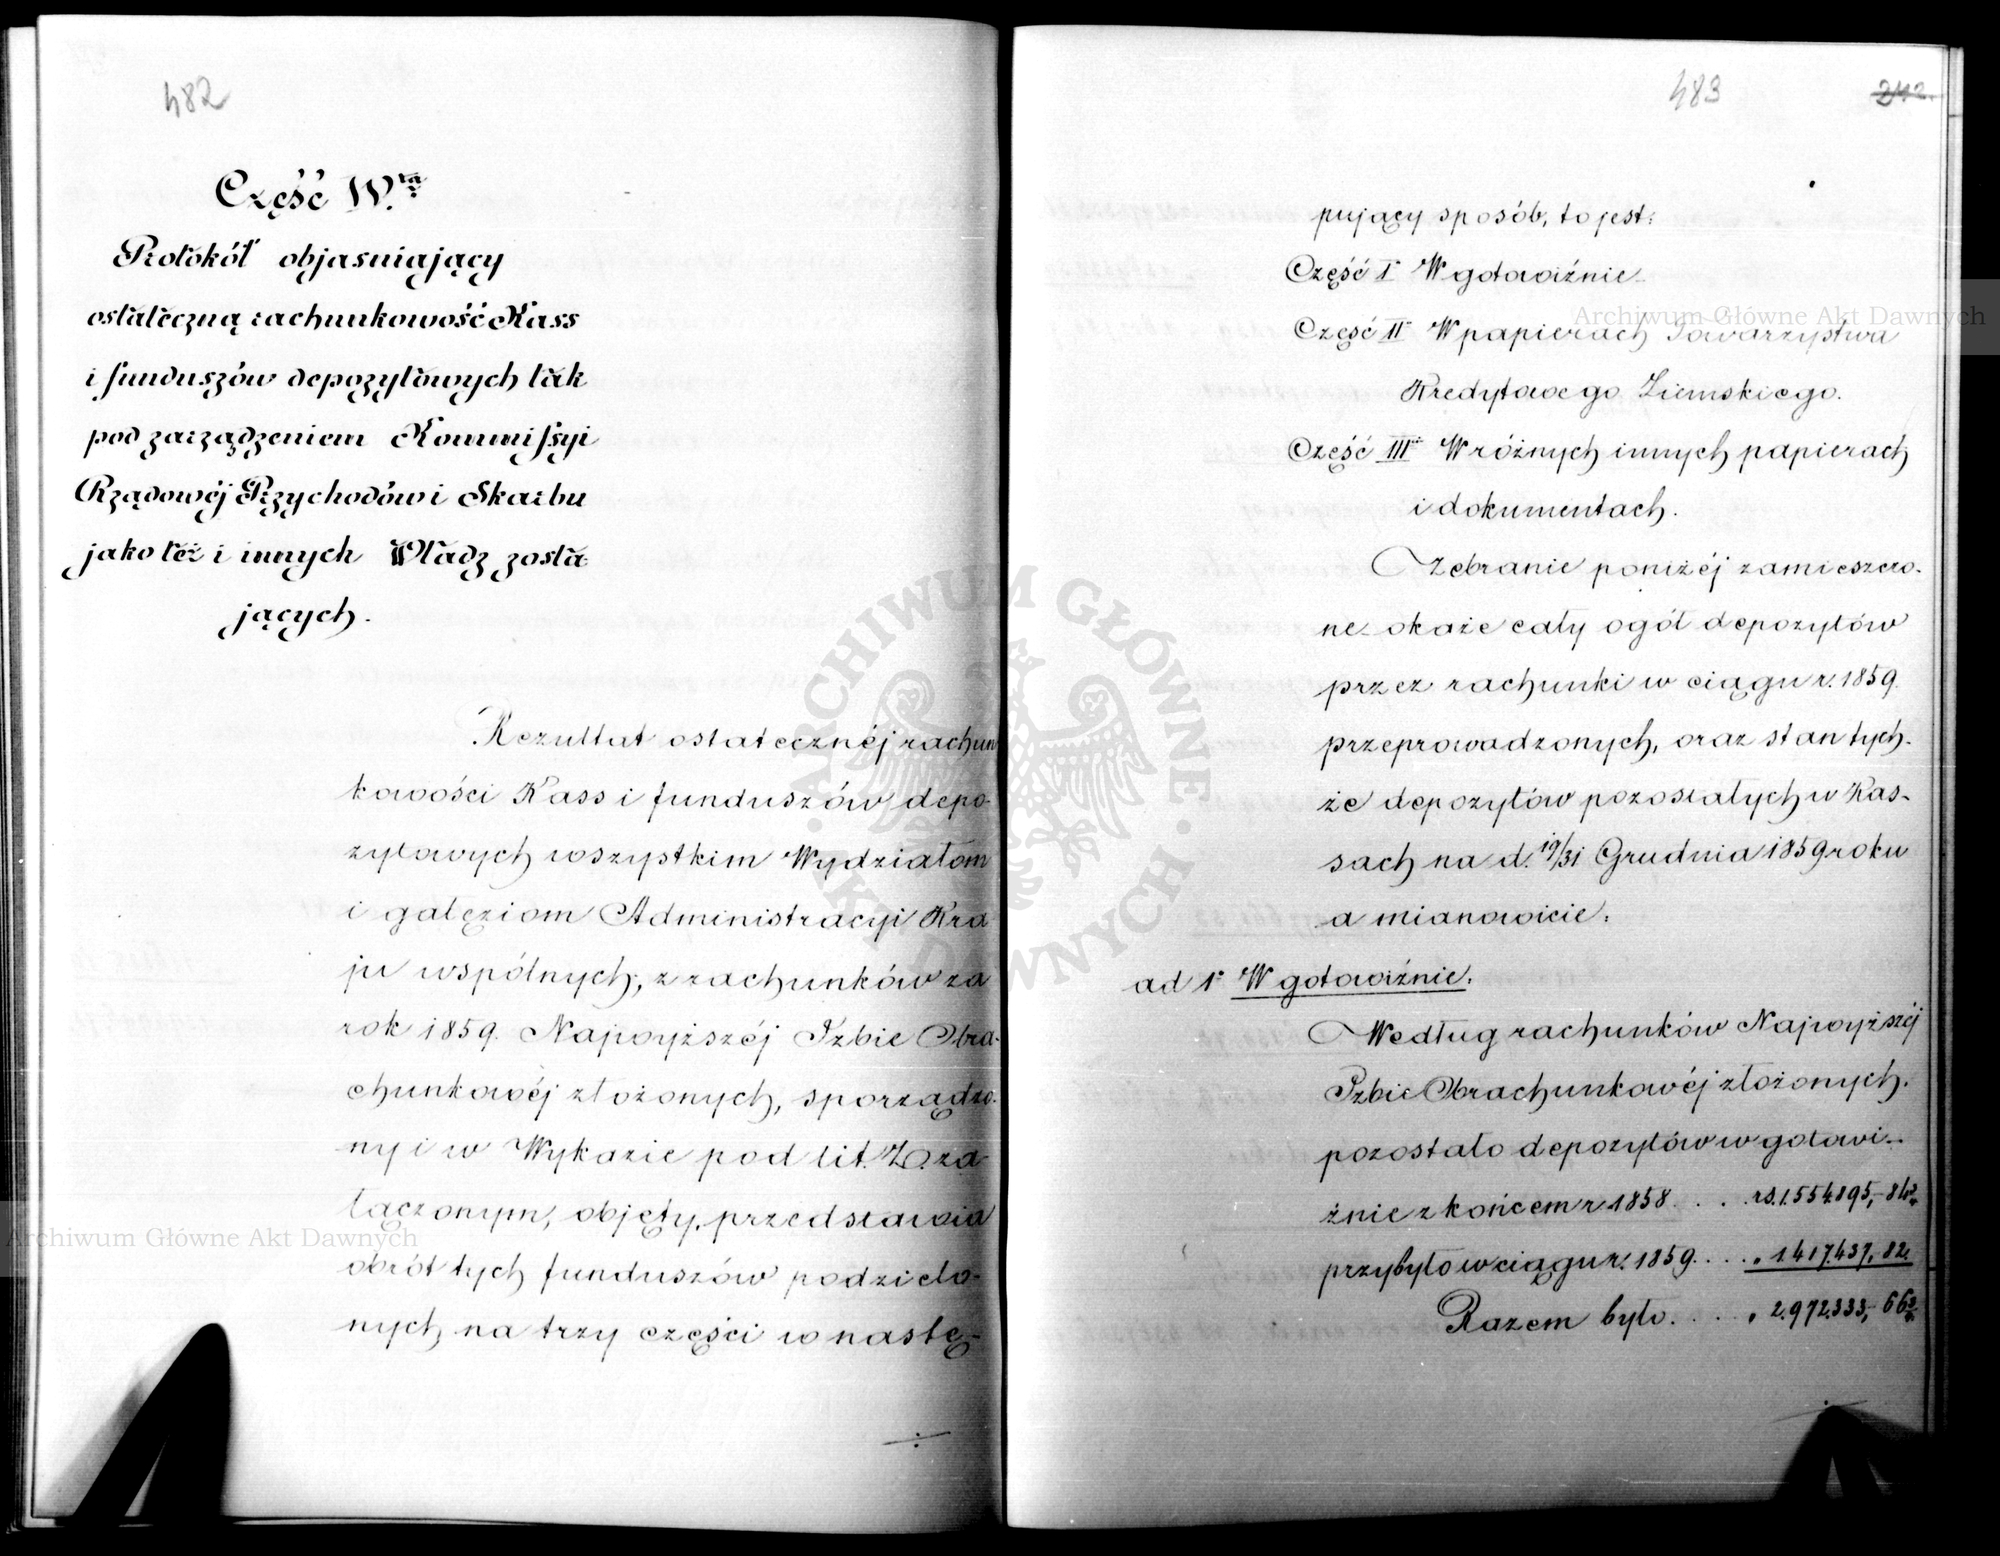 482
Część IV.ta
Protokół objasniający
ostateczną rachunkowość Kass
i funduszów depozytowych tak
pod zarządzeniem Kommissyi
Rządowéj Przychodów i Skarbu
jako też i innych Władz zosta-
jących.
Rezultat ostatecznéj rachun
kowości Kass i funduszów depo-
zytowych wszystkim Wydziałom
i gałęziom Administracyi Kra
ju wspólnych, z rachunków za
rok 1859. Najwyższéj Izbie Obra-
chunkowéj złożonych, sporządzo-
ny i w Wykazie pod lit. Z. za
łączonym, objęty, przedstawia
obrót tych funduszów podzielo-
nych na trzy części w nastę-
483
242.
pujący sposób, to jest:
Część I W gotowiźnie
Część II W papierach Towarzystwa
Kredytowego Ziemskiego.
Część III W różnych innych papierach
i dokumentach.
Zebranie poniżéj zamieszczo-
ne okaże cały ogół depozytów
przez rachunki w ciągu r. 1859
przeprowadzonych, oraz stan tych-
że depozytów pozostałych w Kas-
sach na d. 19/31 Grudnia 1859 roku
a mianowicie:
ad 1° W gotowiźnie.
Według rachunków Najwyższéj
Izbie Obrachunkowéj złożonych.
pozostało depozytów w gotowi-
źnie z końcem r 1858 . . . rs. 1.554.895,- 84
przybyło w ciągu r. 1859 . . . . „ 1 417.437,- 82.
Razem było . . . . . „ 2.972.333,- 66
Archiwum Główne Akt Dawnych
Archiwum Główne Akt Dawnych
ARCHIWUM GŁÓWNE AKT DAWNYCH